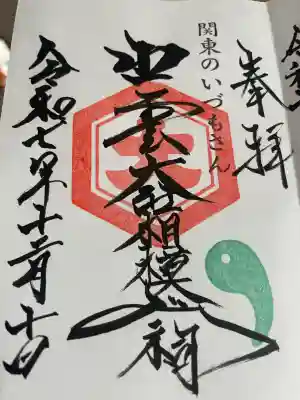 奉拝
関東のいづもさん
出雲大社相模分祠
大
令和七年十二月十四日